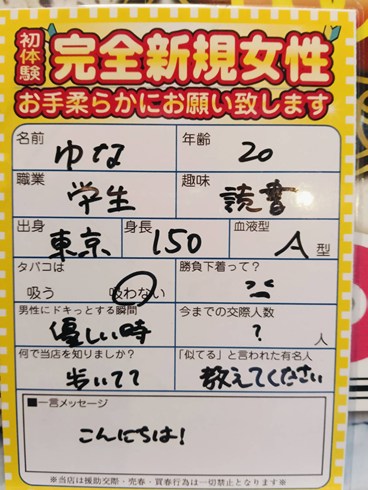 初体験 完全新規女性
お手柔らかにお願い致します
名前 ゆな 年齢 20
職業 学生 趣味 読書
出身 東京 身長 150 血液型 A 型
タバコは 吸う 吸わない 勝負下着って?
男性にドキっとする瞬間 優しい時 今までの交際人数 ? 人
何で当店を知りましたか? 歩いてて 「似てる」と言われた有名人 教えてください
■一言メッセージ
こんにちは!
※当店は援助交際・売春・買春行為は一切禁止となります※